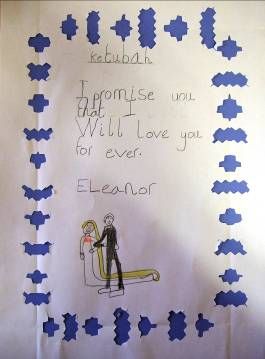 Ketubah
I promise you
that I
Will Love you
for ever.
ELeanor